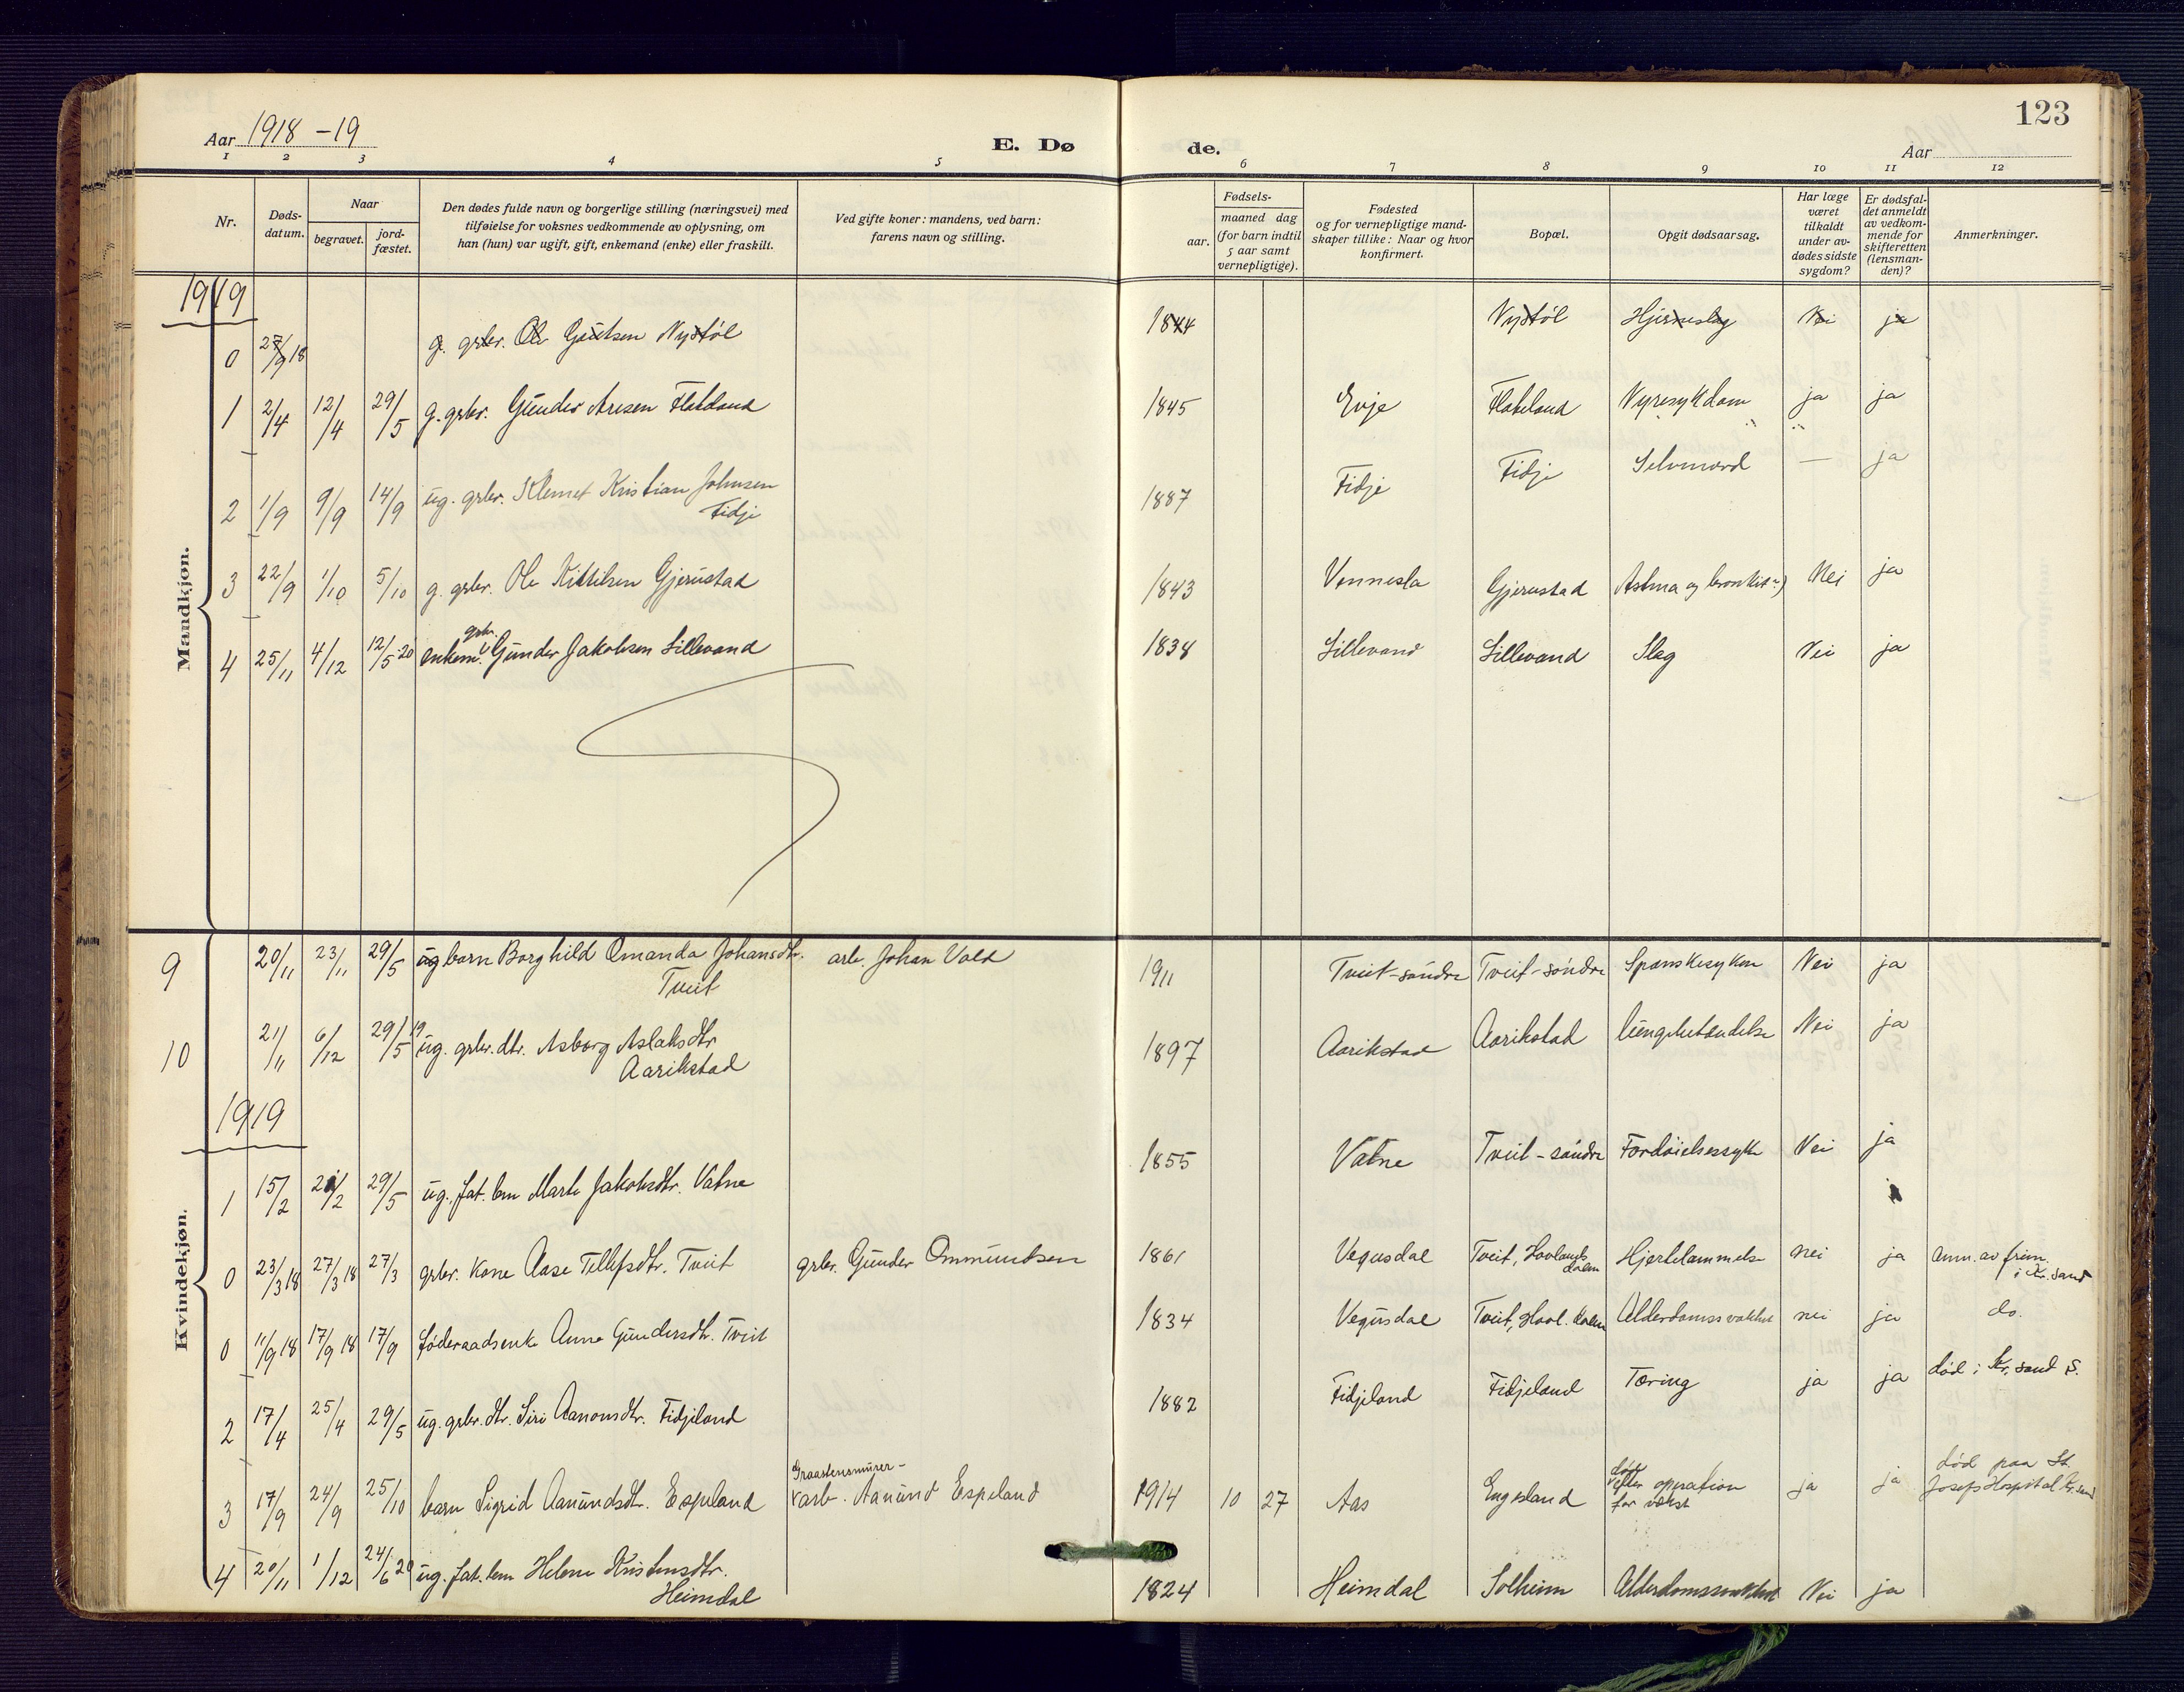 123
Aar 1918 - 19
E. Dø
de.
Aar
1 2 3 4 5 6 7 8 9 10 11 12
Nr.
Døds-
datum.
Naar
begravet.
jord-
fæstet.
Den dødes fulde navn og borgerlige stilling (næringsvei) med
tilføielse for voksnes vedkommende av oplysning, om
han (hun) var ugift, gift, enkemand (enke) eller fraskilt.
Ved gifte koner: mandens, ved barn:
farens navn og stilling.
Fødsels-
aar.
maaned dag
(for barn indtil
5 aar samt
vernepligtige).
Fødested
og for vernepligtige mand-
skaper tillike: Naar og hvor
konfirmert.
Bopæl.
Opgit dødsaarsag.
Har læge
været
tilkaldt
under av-
dødes sidste
sygdom?
Er dødsfal-
det anmeldt
av vedkom-
mende for
skifteretten
(lensman-
den)?
Anmerkninger.
Mandkjøn.
1919
0 27/9 18 g. grbr. Ole Gautsen Nystøl 1844 Nystøl Hjerneslag Nei ja
1 2/4 12/4 29/5 g. grbr. Gunder Aresen Flateland 1845 Evje Flateland Nyresykdom ja ja
2 1/9 9/9 14/9 ug. grbr. Klemet Kristian Johnsen
Fidje 1887 Fidje Fidje Selvmord — ja
3 22/9 1/10 5/10 g. grbr. Ole Kittilsen Gjerustad 1843 Vennesla Gjerustad Astma og bronkit Nei ja
grbr.
4 25/11 4/12 12/5 20 enkem. Gunder Jakobsen Lillevand 1838 Lillevand Lillevand Slag Nei ja
Kvindekjøn.
9 20/11 23/11 29/5 ug barn Borghild Omanda Johansdtr.
Tveit arb. Johan Vold 1911 Tveit-søndre Tveit-søndre Spanskesyken Nei ja
10 21/11 6/12 29/5 19 ug. grbr. dtr. Asborg Aslaksdtr
Aarikstad 1897 Aarikstad Aarikstad lungebetændelse Nei ja
1919
1 15/2 2/2 29/5 ug. fat. lem Marte Jakobsdtr. Vatne 1855 Vatne Tveit-søndre Fordøielsessyke Nei ja
0 23/3 18 27/3 18 27/3 grbr. kone Aase Tellefsdtr. Tveit grbr. Gunder Ommundsen 1861 Vegusdal Tveit, Hovlands
dalen Hjertelammelse nei ja Anm. av frim.
i Kr.sand
0 11/9 18 17/9 18 17/9 føderaadsenke Anne Gundersdtr. Tveit 1834 Vegusdal Tveit, Hovl. dalen Alderdomssvakhet nei ja do.
2 17/4 25/4 29/5 ug. grbr. dtr. Siri Aanonsdtr. Fidjeland 1882 Fidjeland Fidjeland Tæring ja ja død i Kr.sand S.
3 17/9 24/9 25/10 barn Sigrid Aanundsdtr. Espeland Graastensmurer-
arb. Aanund Espeland 1914 10 27 Aas Engesland død
efter operation
for vekst ja ja død paa St.
Josefs Hospital Kr.sand
4 20/11 1/12 24/6 20 ug. fat. lem Helene Kristensdtr.
Heimdal 1824 Heimdal Solheim Alderdomssvakhet Nei ja